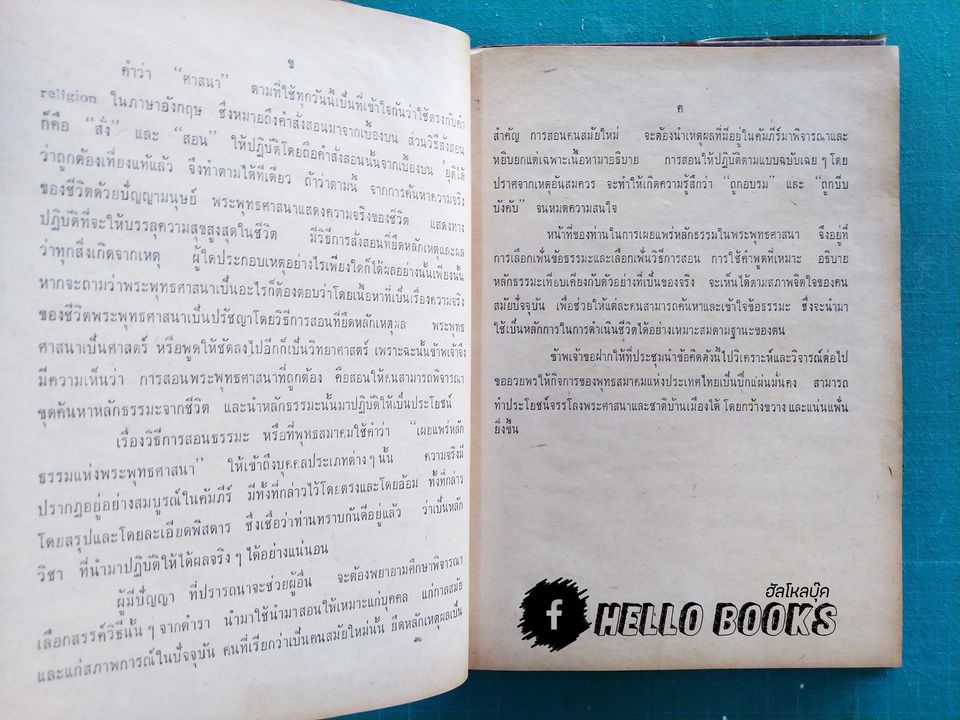 ข
คำว่า “ศาสนา” ตามที่ใช้ทุกวันนี้เป็นที่เข้าใจกันว่าใช้ตรงกับคำ
religion ในภาษาอังกฤษ ซึ่งหมายถึงคำสั่งสอนมาจากเบื้องบน ส่วนวิธีสั่งสอน
ก็คือ “สั่ง” และ “สอน” ให้ปฏิบัติโดยถือคำสั่งสอนนั้นจากเบื้องบน ยุติได้
ว่าถูกต้องเที่ยงแท้แล้ว จึงทำตามได้ทีเดียว ถ้าว่าตามนี้ จากการค้นหาความจริง
ของชีวิตด้วยปัญญามนุษย์ พระพุทธศาสนาแสดงความจริงของชีวิต แสดงทาง
ปฏิบัติที่จะให้บรรลุความสุขสูงสุดในชีวิต มีวิธีการสั่งสอนที่ยึดหลักเหตุและผล
ว่าทุกสิ่งเกิดจากเหตุ ผู้ใดประกอบเหตุอย่างไรเพียงใดก็ได้ผลอย่างนั้นเพียงนั้น
หากจะถามว่าพระพุทธศาสนาเป็นอะไรก็ต้องตอบว่าโดยเนื้อหาที่เป็นเรื่องความจริง
ของชีวิตพระพุทธศาสนาเป็นปรัชญาโดยวิธีการสอนที่ยึดหลักเหตุผล พระพุทธ
ศาสนาเป็นศาสตร์ หรือพูดให้ชัดลงไปอีกก็เป็นวิทยาศาสตร์ เพราะฉะนั้นข้าพเจ้าจึง
มีความเห็นว่า การสอนพระพุทธศาสนาที่ถูกต้อง คือสอนให้คนสามารถพิจารณา
ขุดค้นหาหลักธรรมะจากชีวิต และนำหลักธรรมะนั้นมาปฏิบัติให้เป็นประโยชน์
เรื่องวิธีการสอนธรรมะ หรือที่พุทธสมาคมใช้คำว่า “เผยแพร่หลัก
ธรรมแห่งพระพุทธศาสนา” ให้เข้าถึงบุคคลประเภทต่าง ๆ นั้น ความจริงมี
ปรากฏอยู่อย่างสมบูรณ์ในคัมภีร์ มีทั้งที่กล่าวไว้โดยตรงและโดยอ้อม ทั้งที่กล่าว
โดยสรุปและโดยละเอียดพิสดาร ซึ่งเชื่อว่าท่านทราบกันดีอยู่แล้ว ว่าเป็นหลัก
วิชา ที่นำมาปฏิบัติให้ได้ผลจริง ๆ ได้อย่างแน่นอน
ผู้มีปัญญา ที่ปรารถนาจะช่วยผู้อื่น จะต้องพยายามศึกษาพิจารณา
เลือกสรรค์วิธีนั้น ๆ จากตำรา นำมาใช้นำมาสอนให้เหมาะแก่บุคคล แก่กาลสมัย
และแก่สภาพการณ์ในปัจจุบัน คนที่เรียกว่าเป็นคนสมัยใหม่นั้น ยึดหลักเหตุผลเป็น
ค
สำคัญ การสอนคนสมัยใหม่ จะต้องนำเหตุผลที่มีอยู่ในคัมภีร์มาพิจารณาและ
หยิบยกแต่เฉพาะเนื้อหามาอธิบาย การสอนให้ปฏิบัติตามแบบฉบับเฉย ๆ โดย
ปราศจากเหตุอันสมควร จะทำให้เกิดความรู้สึกว่า “ถูกอบรม” และ “ถูกบีบ
บังคับ” จนหมดความสนใจ
หน้าที่ของท่านในการเผยแพร่หลักธรรมในพระพุทธศาสนา จึงอยู่ที่
การเลือกเฟ้นข้อธรรมะและเลือกเฟ้นวิธีการสอน การใช้คำพูดที่เหมาะ อธิบาย
หลักธรรมะเทียบเคียงกับตัวอย่างที่เป็นของจริง จะเห็นได้ตามสภาพจิตใจของคน
สมัยปัจจุบัน เพื่อช่วยให้แต่ละคนสามารถค้นหาและเข้าใจข้อธรรมะ ซึ่งจะนำมา
ใช้เป็นหลักการในการดำเนินชีวิตได้อย่างเหมาะสมตามฐานะของตน
ข้าพเจ้าขอฝากให้ที่ประชุมนำข้อคิดดังนี้ไปวิเคราะห์และวิจารณ์ต่อไป
ขออวยพรให้กิจการของพุทธสมาคมแห่งประเทศไทยเป็นปึกแผ่นมั่นคง สามารถ
ทำประโยชน์จรรโลงพระศาสนาและชาติบ้านเมืองได้ โดยกว้างขวาง และแน่นแฟ้น
ยิ่งขึ้น
ฮัลโหลบุ๊ค
f HELLO BOOKS